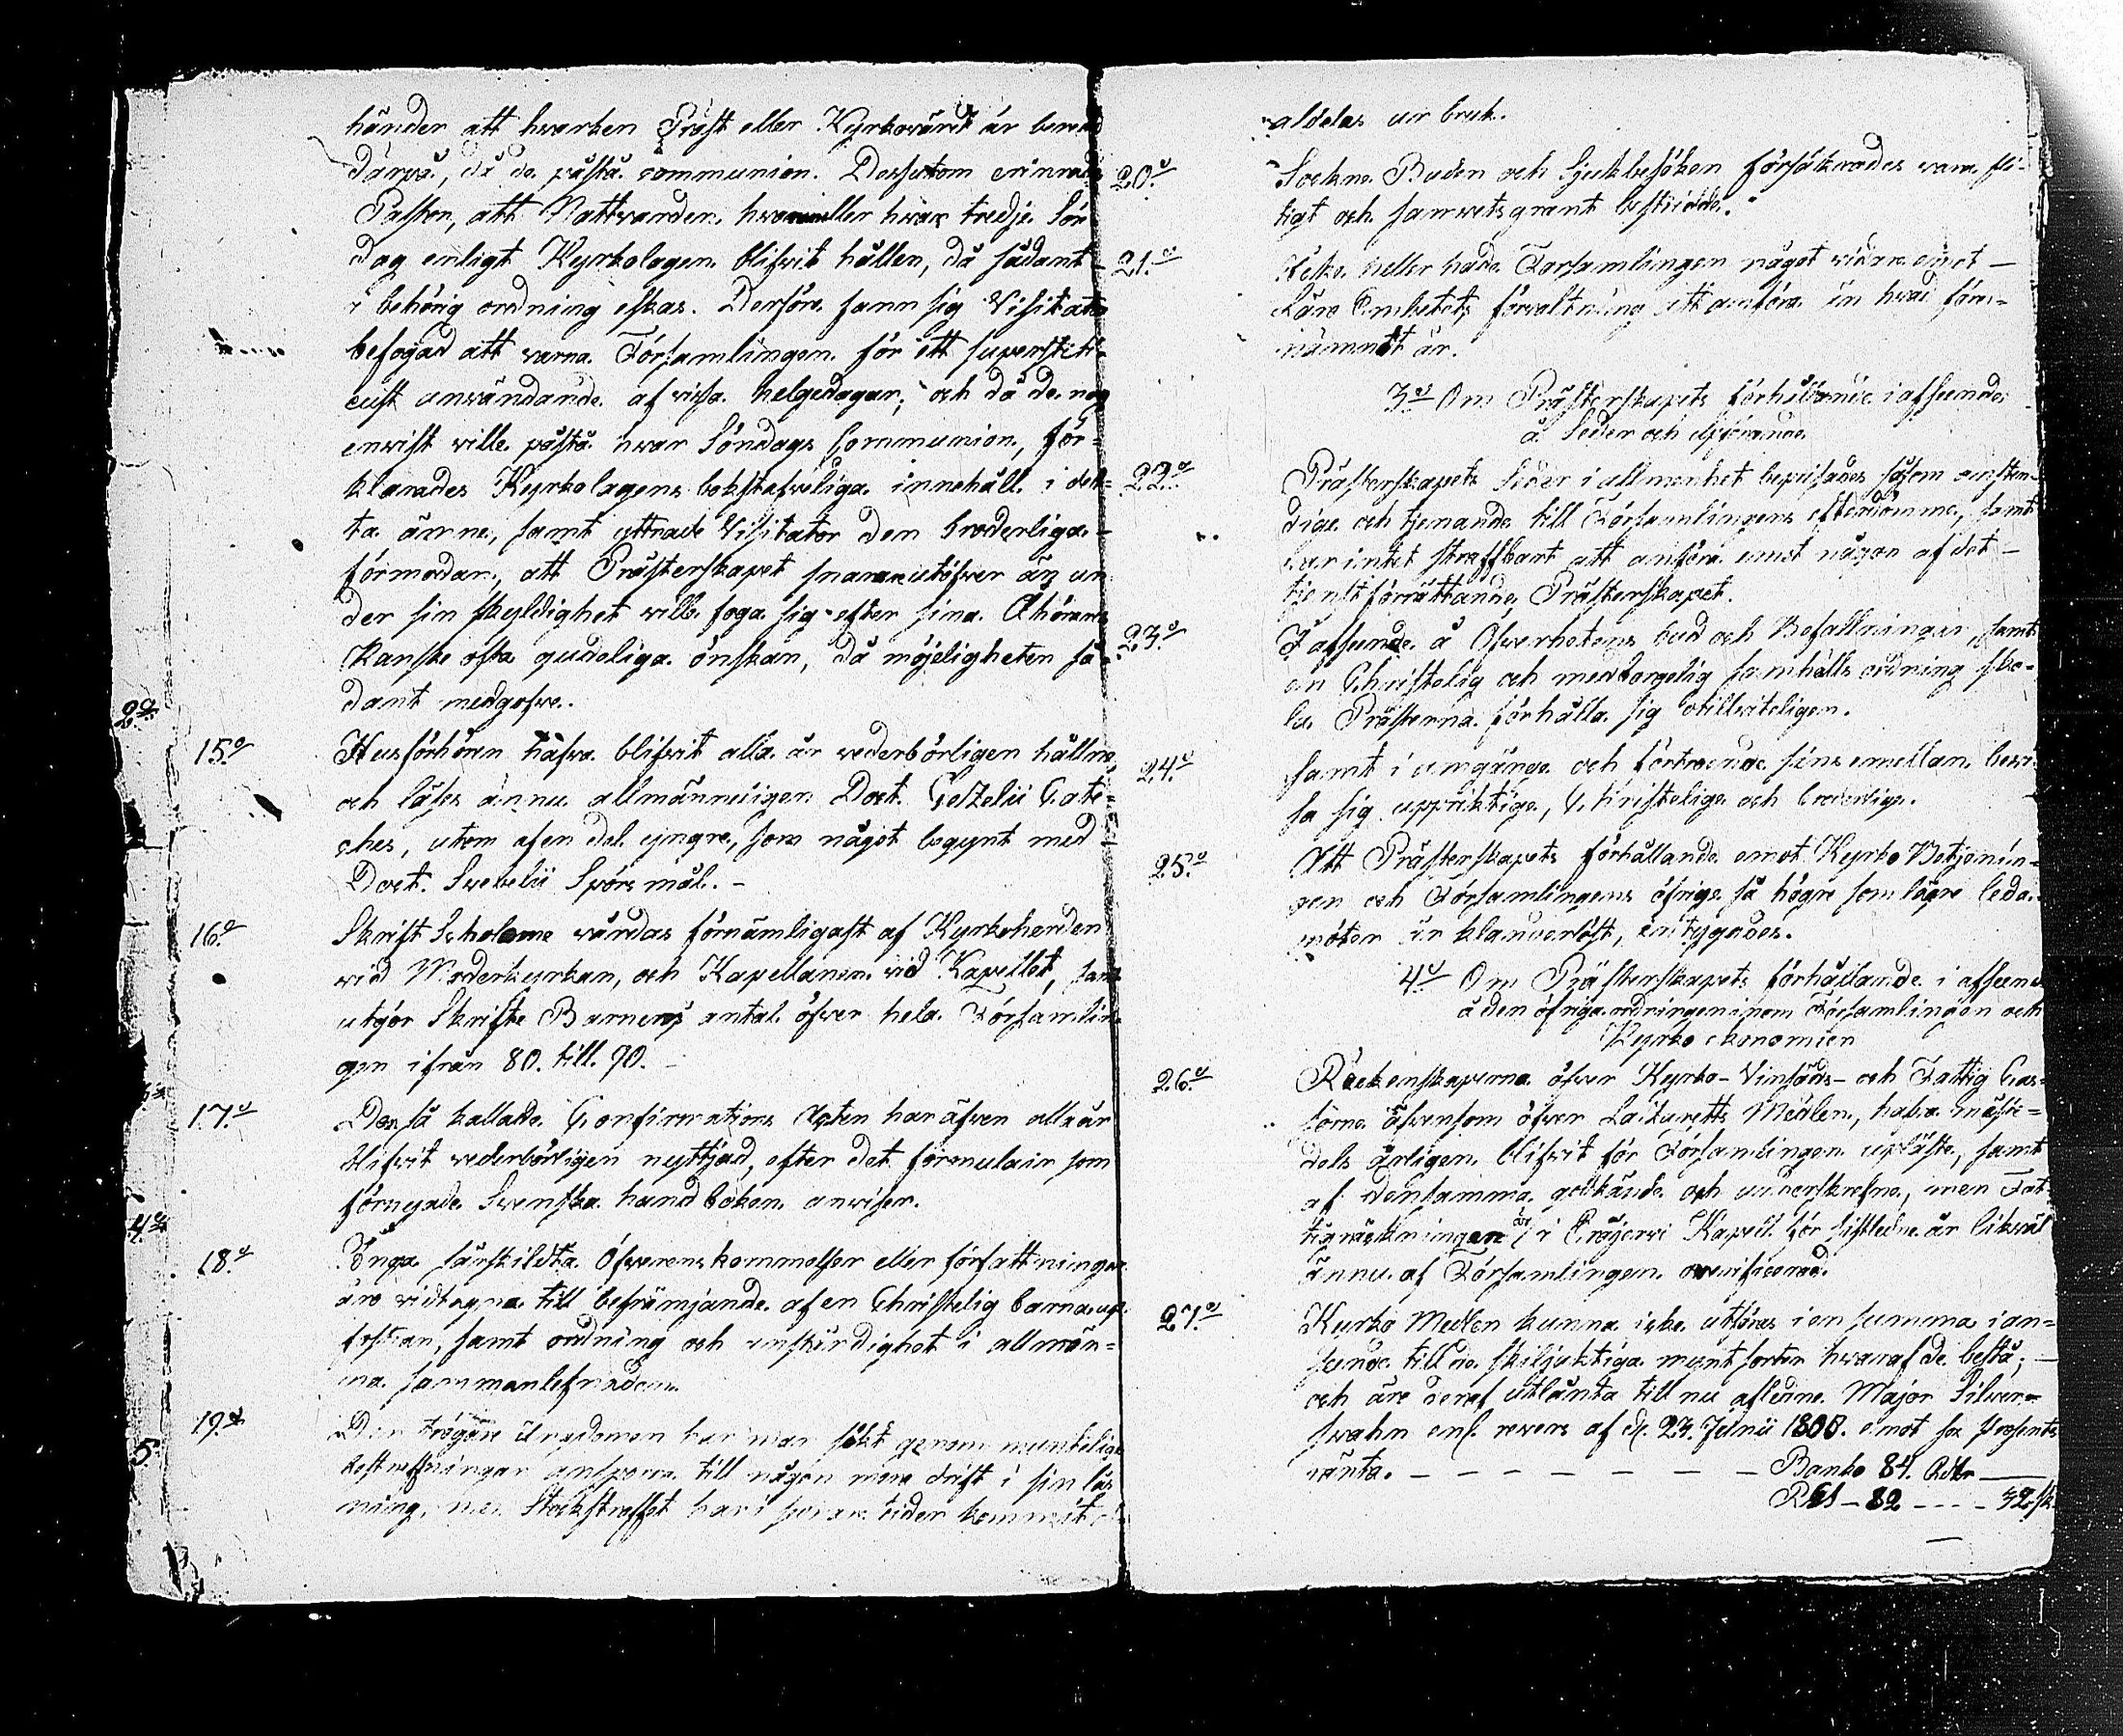 händer att hvarken Präst eller Kyrkovärd är beredd
därpå, då de påstå communion. Dessutom erinrade
Pastor, att Nattvarden hvar eller hvar tredje Sön
dag enligt Kyrkolagen blifvit hållen, då sådant
i behörig ordning eskas. Derföre fann sig Visitator
befogad att varna Församlingen för ett superstiti-
eust användande af vissa helgedagar; och då de nog
envist ville påstå hvar Söndags Communion, för-
klarades Kyrkolagens bokstafveliga innehåll i det-
ta ämne, samt yttrade Visitator den broderliga
förmodan, att Prästerskapet snarare utöfver än un
der sin skyldighet ville foga sig efter sina Åhörares
kanske ofta gudeliga önskan, då möjeligheten så-
dant medgofve.
2º
15º Husförhören hafva blifvit alla år vederbörligen hållne,
och läses ännu allmänneligen Doct. Gezelii Cate-
ches, utom af en del yngre, som något begynt med
Doct. Svebelii Spörsmål. -
16º Skrift Scholorne vårdas förnämligast af Kyrkoherden
vid Moderkyrkan, och Kapellanen vid Kapellet, samt
utgör Skrifte Barnens antal öfver hela Församlin-
gen ifrån 80. till 90. -
17º Den så kallade Confirmations Acten har äfven alla år
blifvit vederbörligen nyttjad, efter det formulair som
förnyade Svenska handboken anviser.
4º
18º Inga särskildta Öfverenskommelser eller författningar
äro vidtagna till befrämjande af en Christelig barnaup
fostran, samt ordning och anständighet i allmän-
na sammanlefnaden.
19º Den trögare Ungdomen har man sökt genom muntelige
bestraffningar ansporra till någon mera drift i sin läs
ning, men Stockstraffet har i senare tider kommit
5.
aldeles ur bruk.
20º Sockne Buden och Sjukbesöken försäkrades vara fli-
tigt och samvetsgrant bestridde.
21º Icke heller hade Församlingen något vidare emot
Läro Embetets förvaltning att anföra än hvad föru-
nämndt är.
3º Om Prästerskapets förhållande i afseende
å Seder och
22º Prästerskapets Seder i allmänhet beprisades såsom anstän-
dige och tjenande till Församlingens efterdömme, samt
har intet straffbart att anföra emot någon af det
tjenstförrättande Prästerskapet.
23º I afseende å Öfverhetens bud och Befallningar, samt
en Christelig och medborgelig samhälls ordning sko-
la Prästerna förhålla sig otillviteligen.
24º samt i umgänge och förtroende sins emellan bevi-
sa sig uppriktige, Christelige och broderlige.
25º Att Prästerskapets förhållande emot Kyrko Betjenin-
gen och Församlingens öfrige så högre som lägre leda-
möter är klanderlöst, intygades.
4º Om Prästerskapets förhållande i afseende
å den öfriga ordningen inom Församlingen och
Kyrko ekonomien
26º Räckenskaperna öfver Kyrko- Vinsäds- och Fattig Cas-
sorne äfvensom öfver Lazaretts Medlen, hafva
dels årligen blifvit för Församlingen upläste, samt
af densamma godkände och underskrefne, men Fat-
tigräkningen i Kapell för sistledne år likväl
ännu af Församlingen overificerad.
27º Kyrko Medlen kunna icke utföras i en summa i an-
seende till de skiljaktiga myntsorter hvaraf de bestå;
och äro deraf utlånta till nu aflidne Major Silver-
svahn enl. revers af d. 23. Julii 1800. emot sex Procents
ränta. - - - - - - - Banko 84. Rdlr ___
RGS - 82 - - - - 32 sk.